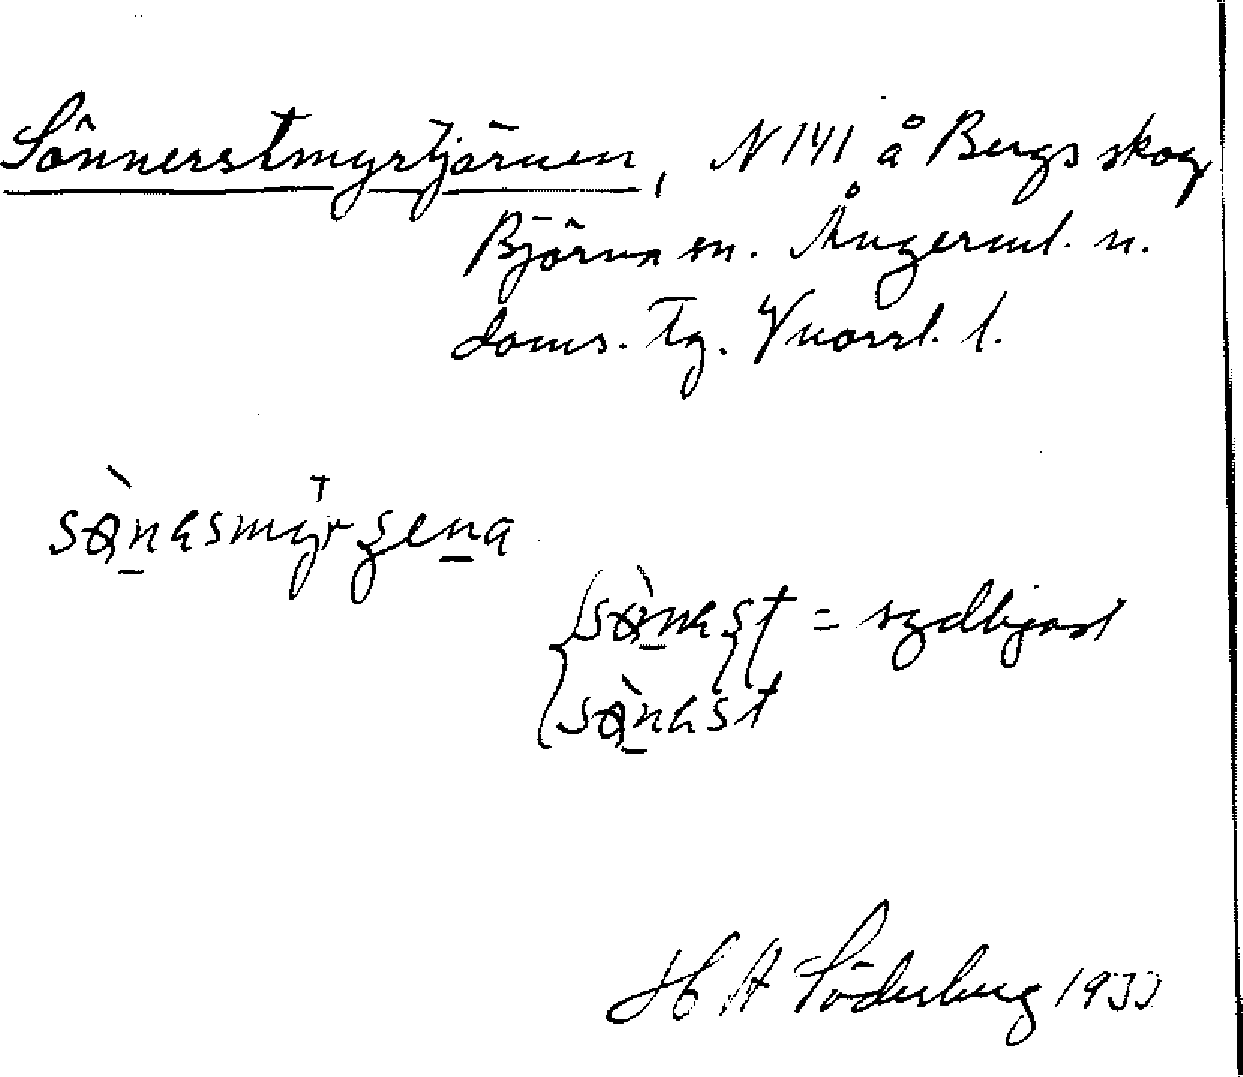 Sönnerstmyrtjärnen, N 141 å Bergs skog
Björna sn. Ångerml. n.
doms. Tg. Vnorrl. l.
sǫ̀nasmyr ʂena
sǫ̀nast = sydligast
sǫ̀nast
H A Söderberg 1933